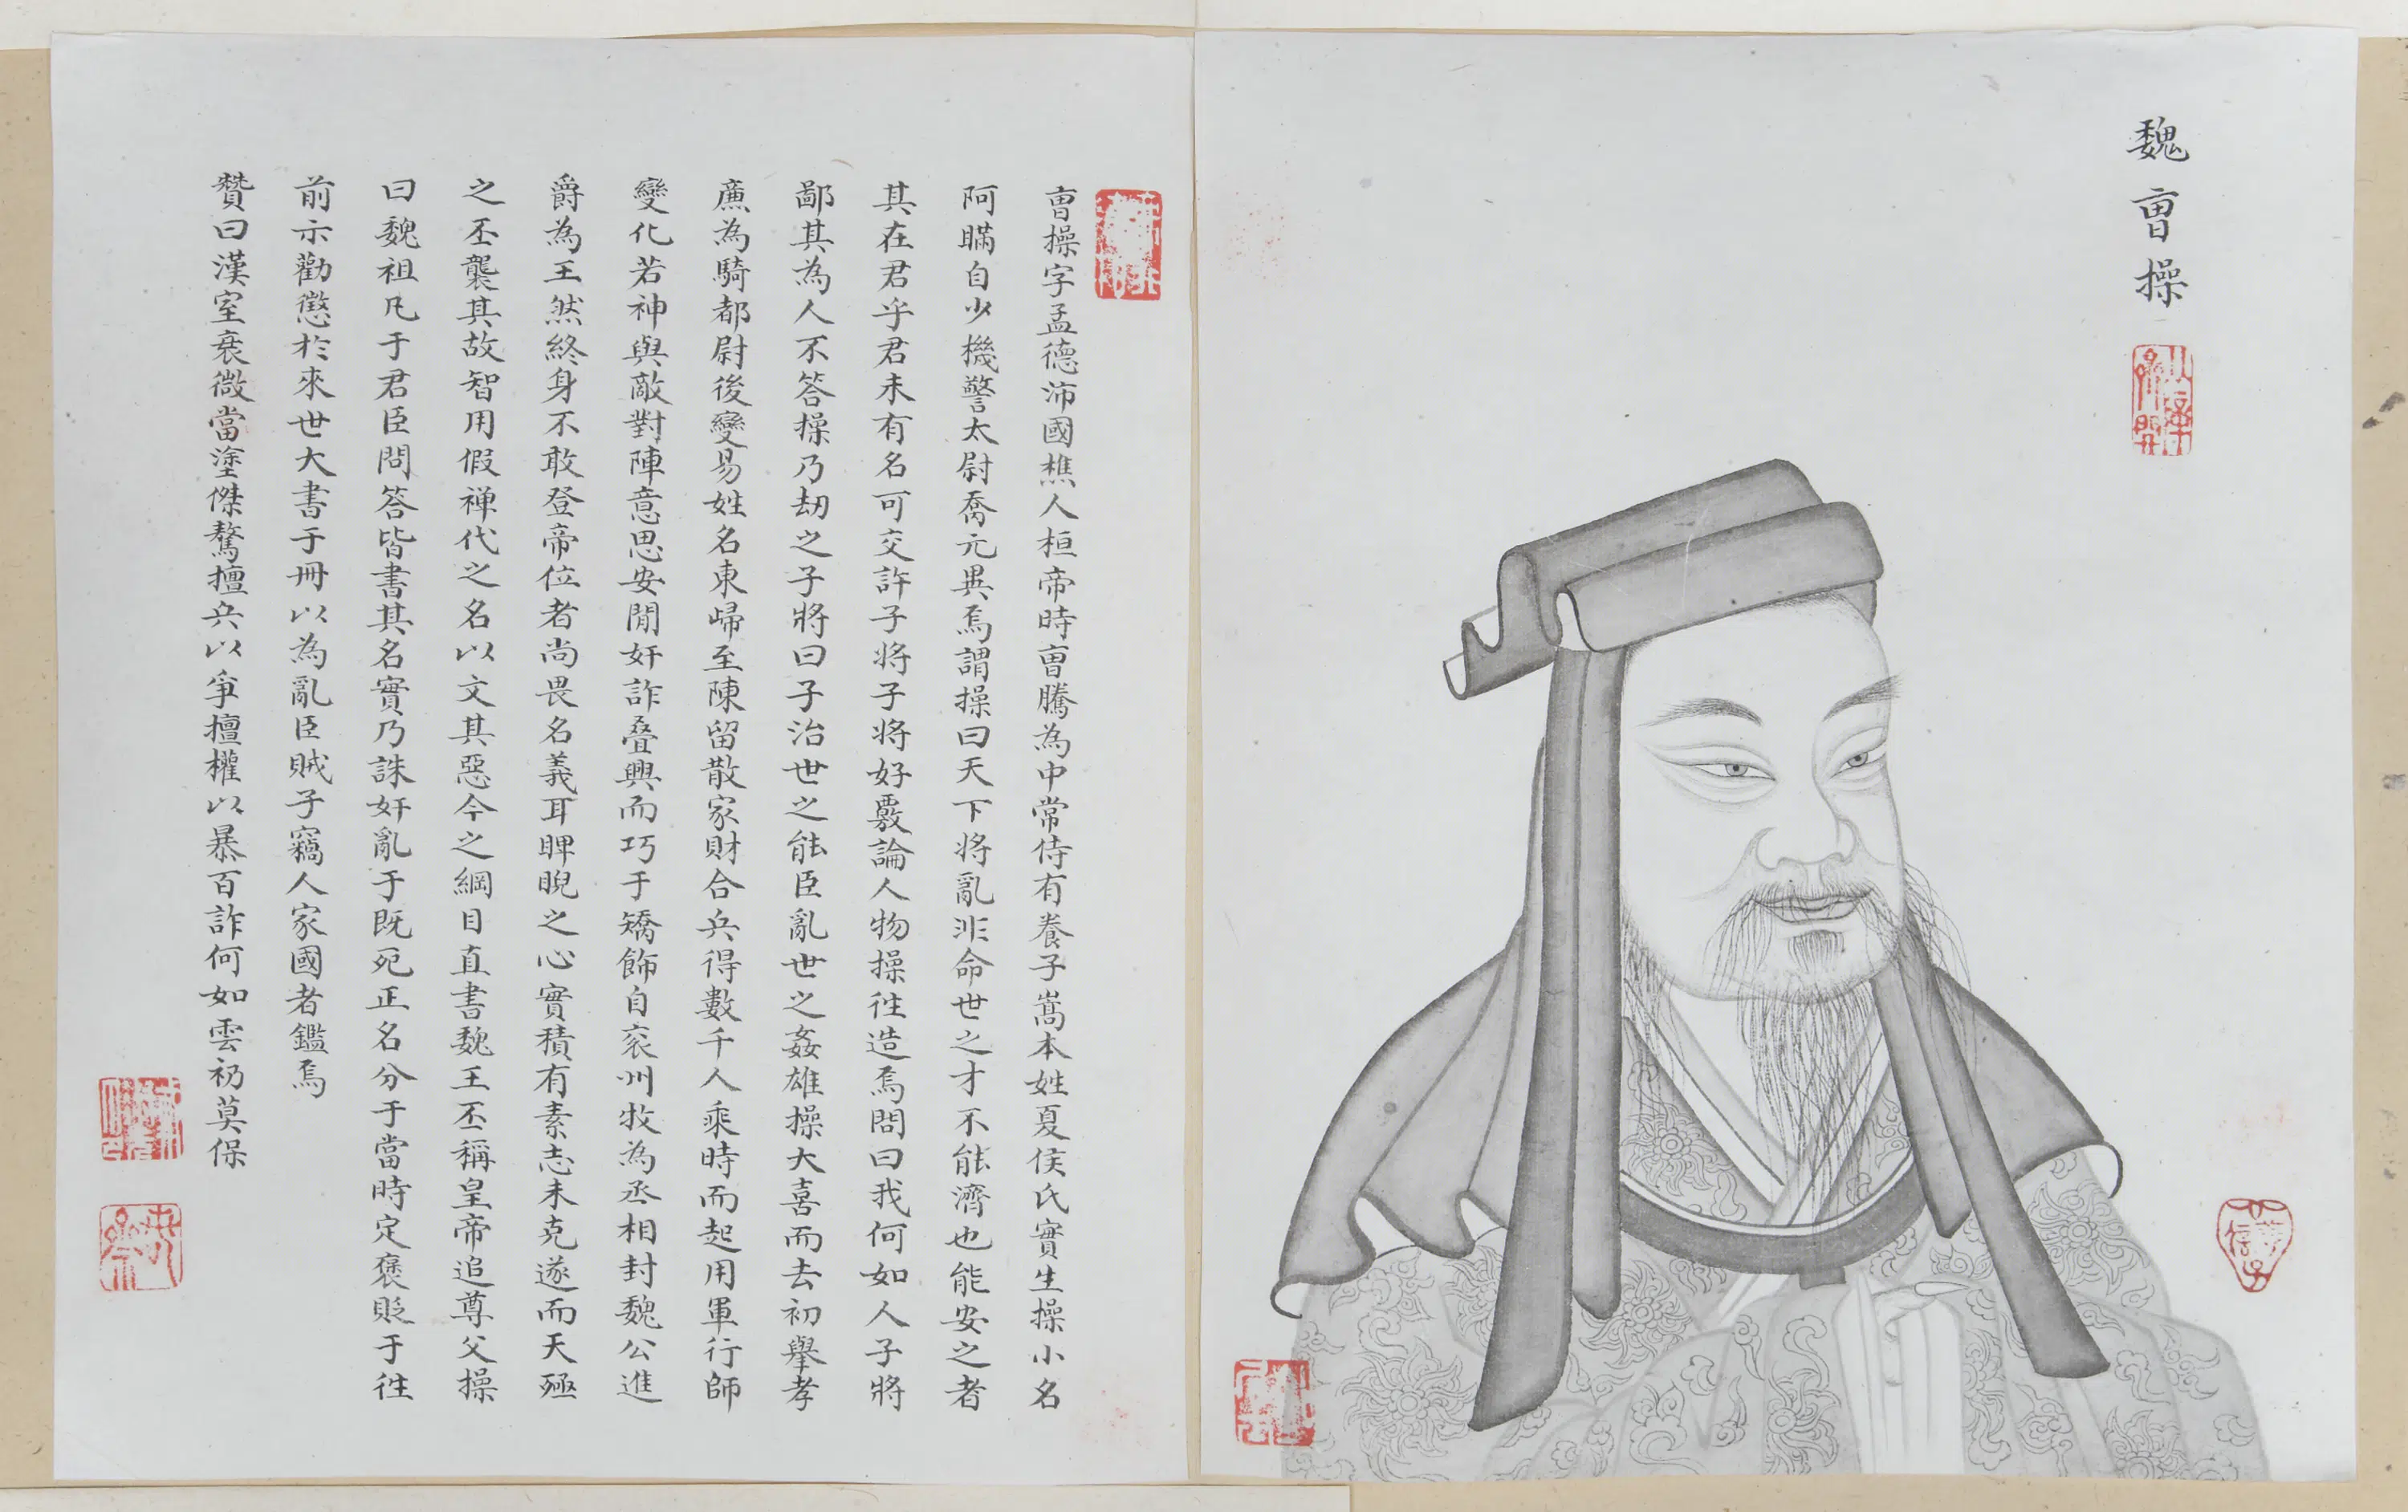 魏曹操
曹操字孟德沛國樵人桓帝時曹騰為中常侍有養子嵩本姓夏侯氏實生操小名
阿瞞自少機警太尉喬元異焉謂操曰天下將亂非命世之才不能濟也能安之者
其在君乎君未有名可交許子將子將好覈論人物操往造焉問曰我何如人子將
鄙其為人不答操乃劫之子將曰子治世之能臣亂世之姦雄操大喜而去初舉孝
廉為騎都尉後變易姓名東歸至陳留散家財合兵得數千人乘時而起用軍行師
變化若神與敵對陣意思安閒奸詐叠興而巧于矯飾自兖州牧為丞相封魏公進
爵為王然終身不敢登帝位者尚畏名義耳睥睨之心實積有素志未克遂而天殛
之丕襲其故智用假禪代之名以文其惡今之綱目直書魏王丕稱皇帝追尊父操
曰魏祖凡于君臣問答皆書其名實乃誅奸亂于既死正名分于當時定褒貶于往
前示勸懲於來世大書于冊以為亂臣賊子竊人家國者鑑焉
贊曰漢室衰微當塗傑驁擅兵以爭擅權以暴百詐何如雲礽莫保